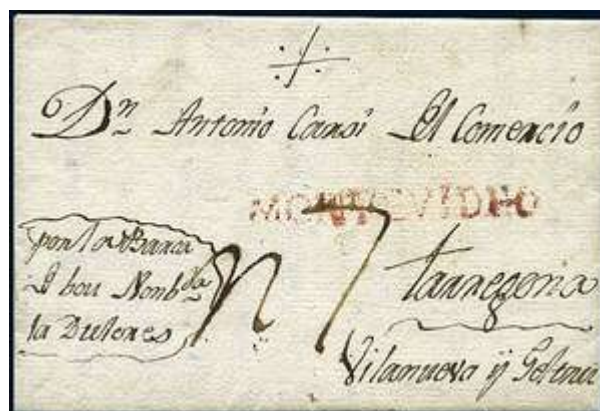 Dn Antonio Carsi El Comercio
MONTEVIDEO
por la Barca
Nonbda
la Dulores
7
tarregona
Vilanueva ÿ Geltru